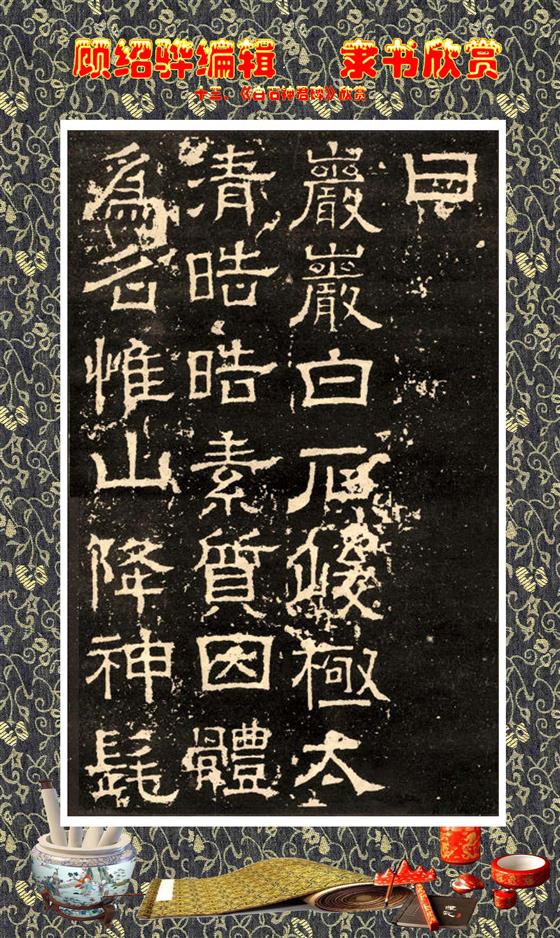 顾绍骅编辑 隶书欣赏
十三、《白石神君碑》欣赏
曰
巖巖白石峻極太
清皓皓素質因體
為名惟山降神髦